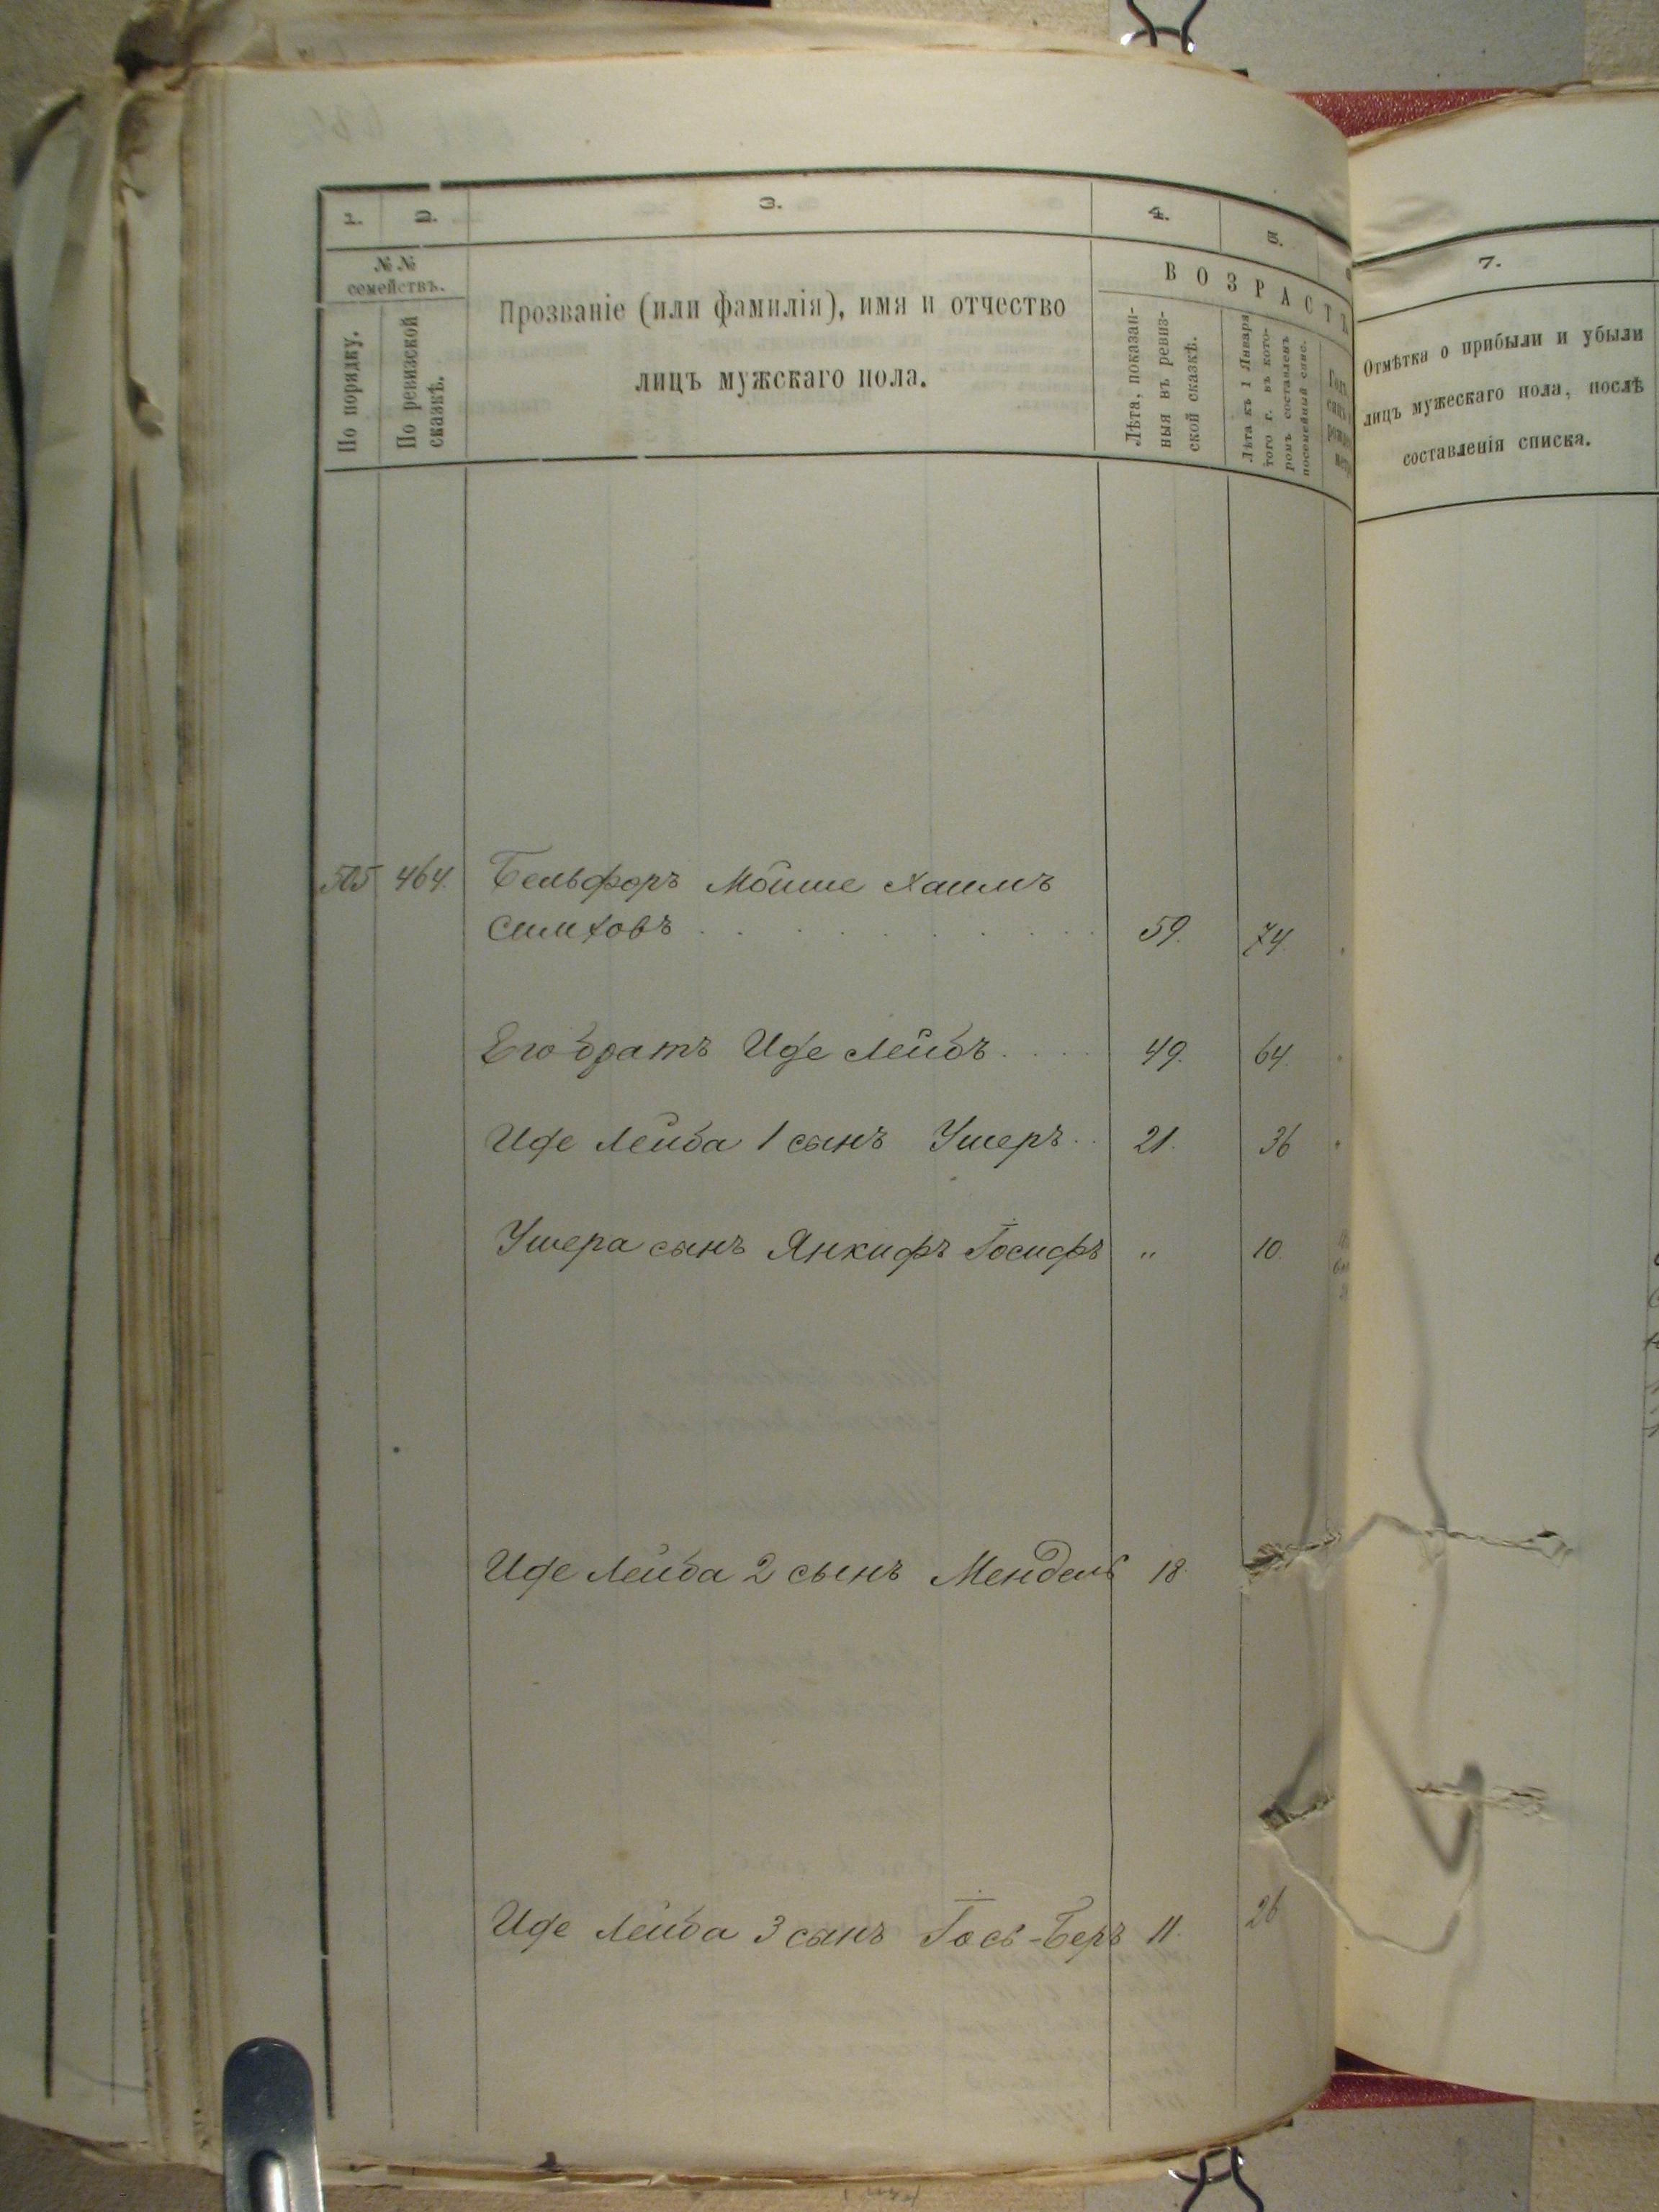 1. 2. 3. 4. 5.
№ №
семействъ.
По порядку.
По ревизской
сказкѣ.
Прозваніе (или фамилія), имя и отчество
лицъ мужскаго пола.
ВОЗРАСТЪ
Лѣта, показан-
ныя въ ревиз-
ской сказкѣ.
Лѣта къ 1 Января
того г. въ кото-
ромъ составленъ
посемейный спис.
7.
Отмѣтка о прибыли и убыли
лицъ мужескаго пола, послѣ
составленія списка.
505 464. Бельфоръ Мойше Хаимъ
Симховъ 59. 74.
Его братъ Иде Лейбъ 49. 64.
Иде Лейба 1 сынъ Ушеръ 21. 36
Ушера сынъ Янкифъ Іосифъ " 10.
Иде Лейба 2 сынъ Мендель 18.
Иде Лейба 3 сынъ Іось-Беръ 11. 26